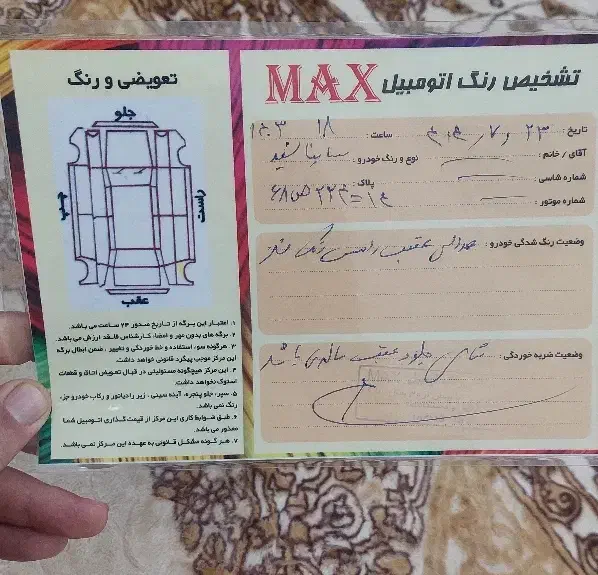 تشخیص رنگ اتومبیل MAX
تاریخ: ۲۳ / ۷ / ساعت: ۱۸
آقای / خانم: نوع و رنگ خودرو: ساینا سفید
شماره شاسی: پلاک: ۶۸ ص ۲۲۴
شماره موتور:
وضعیت رنگ شدگی خودرو: گلگیر عقب راست رنگ
وضعیت ضربه خوردگی: شاسی جلو و عقب سالم می باشد
تعویضی و رنگ
جلو
چپ
راست
عقب
۱. اعتبار این برگه از تاریخ صدور ۲۴ ساعت می باشد.
۲. برگه های بدون مهر و امضاء کارشناس فاقد ارزش می باشد.
۳. هرگونه سوء استفاده و خط خوردگی و تغییر، ضمن ابطال برگه
این مرکز موجب پیگرد قانونی خواهد داشت.
۴. این مرکز هیچگونه مسئولیتی در قبال تعویض اتاق و قطعات
استوک نخواهد داشت.
۵. سپر، جلو پنجره، آینه سینی، زیر رادیاتور و رکاب خودرو جزء
رنگ نمی باشد.
۶. طبق ضوابط کاری این مرکز از قیمت گذاری اتومبیل شما
معذور می باشد.
۷. هر گونه مشکل قانونی به عهده این مرکز نمی باشد.